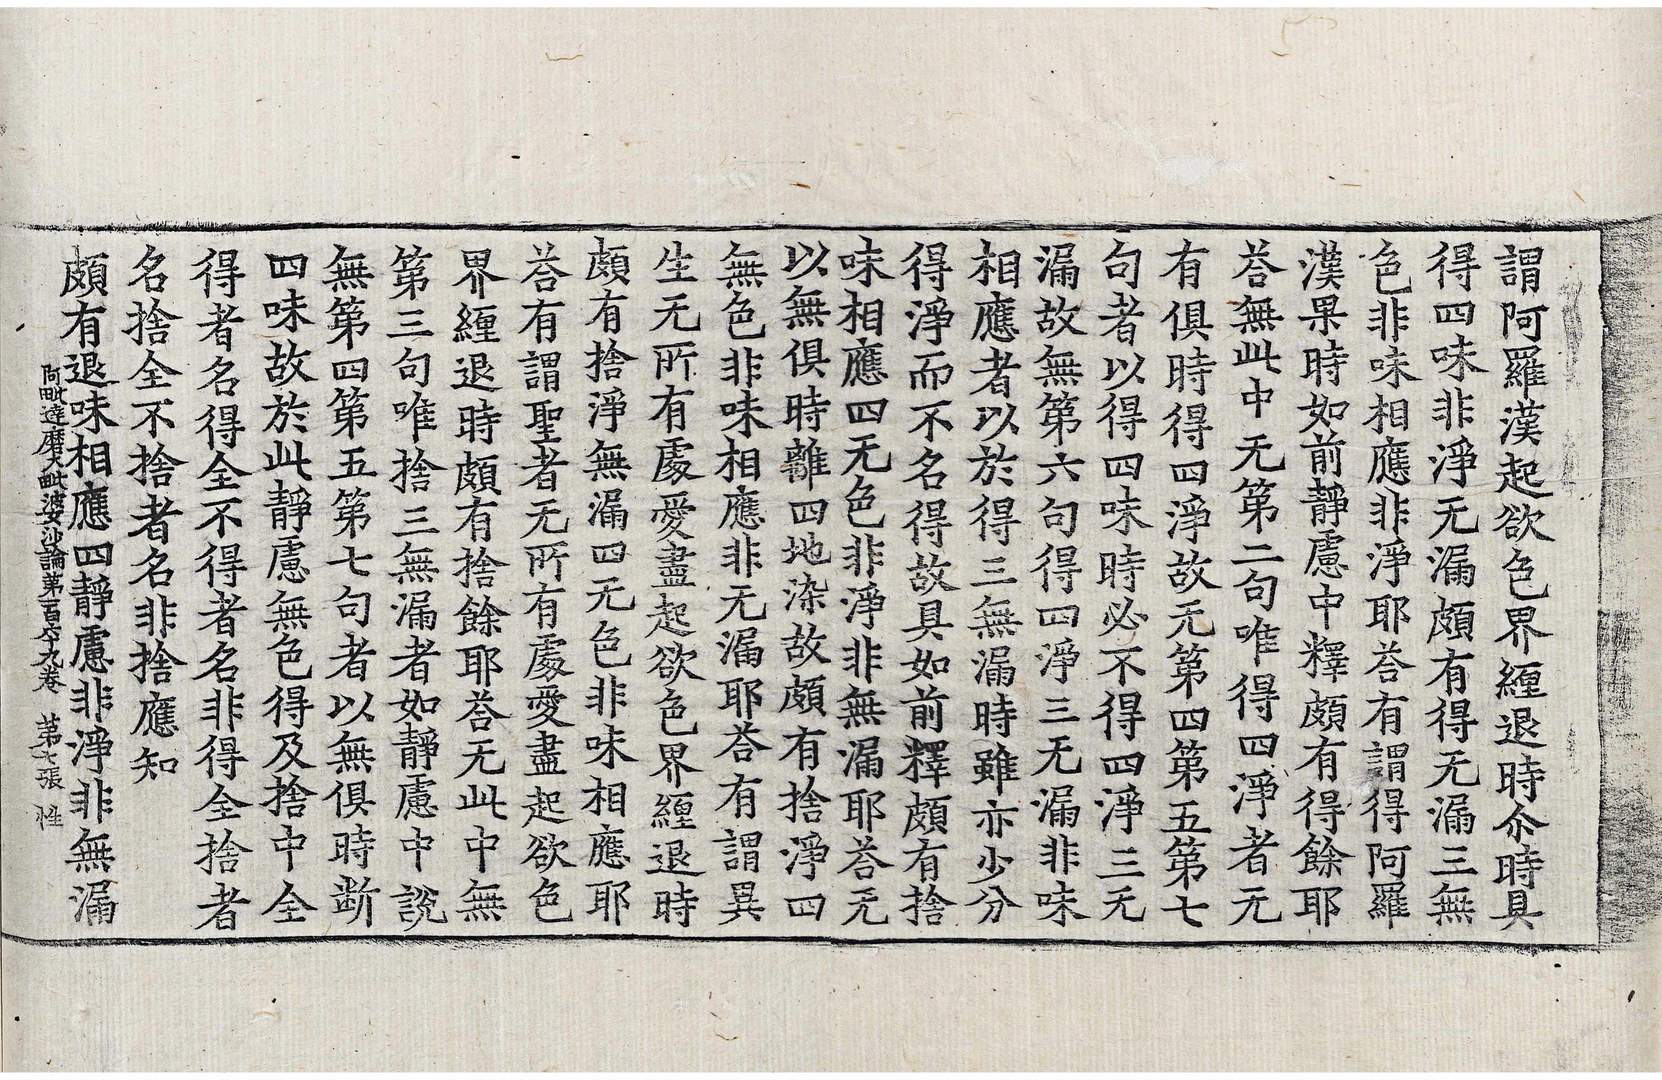 謂阿羅漢起欲色界纏退時尒時具
得四味非淨无漏頗有得无漏三無
色非味相應非淨耶荅有謂得阿羅
漢果時如前靜慮中釋頗有得餘耶
荅無此中无第二句唯得四淨者无
有俱時得四淨故无第四第五第七
句者以得四味時必不得四淨三无
漏故無第六句得四淨三无漏非味
相應者以於得三無漏時雖亦少分
得淨而不名得故具如前釋頗有捨
味相應四无色非淨非無漏耶荅无
以無俱時離四地染故頗有捨淨四
無色非味相應非无漏耶荅有謂異
生无所有處愛盡起欲色界纏退時
頗有捨淨無漏四无色非味相應耶
荅有謂聖者无所有處愛盡起欲色
界纏退時頗有捨餘耶荅无此中無
第三句唯捨三無漏者如靜慮中說
無第四第五第七句者以無俱時断
四味故於此靜慮無色得及捨中全
得者名得全不得者名非得全捨者
名捨全不捨者名非捨應知
頗有退味相應四靜慮非淨非無漏
阿毗達磨大毗婆沙論第一百六十九卷　第七張　性